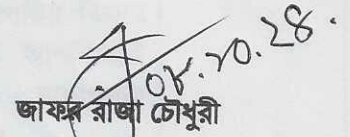 ০৮.১০.২৪.
জাফর রাজা চৌধুরী